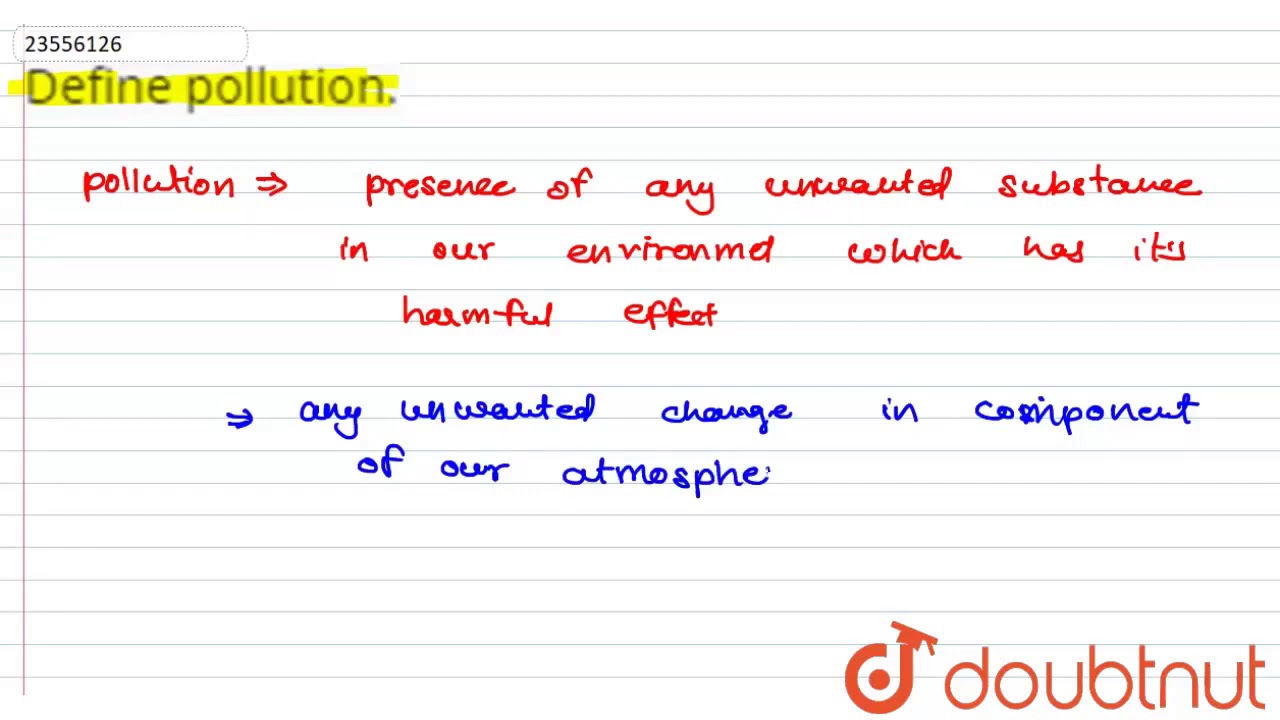 23556126
Define pollution.
pollution ⇒ presence of any unwanted substance
in our environmd which has its
harmful effect
⇒ any unwanted change in component
of our atmosphe
doubtnut